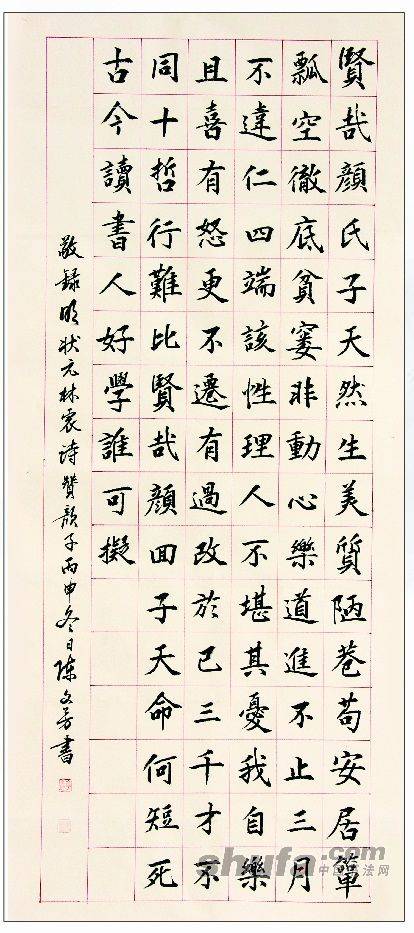 賢哉顏氏子天然生美質陋巷苟安居簞
瓢空徹底貧窶非動心樂道進不止三月
不違仁四端該性理人不堪其憂我自樂
且喜有怒更不遷有過改於己三千才不
同十哲行難比賢哉顏回子天命何短死
古今讀書人好學誰可擬
敬録明状元林震诗贊顏子丙申冬日陳文芳書
shufa.com
中国书法网